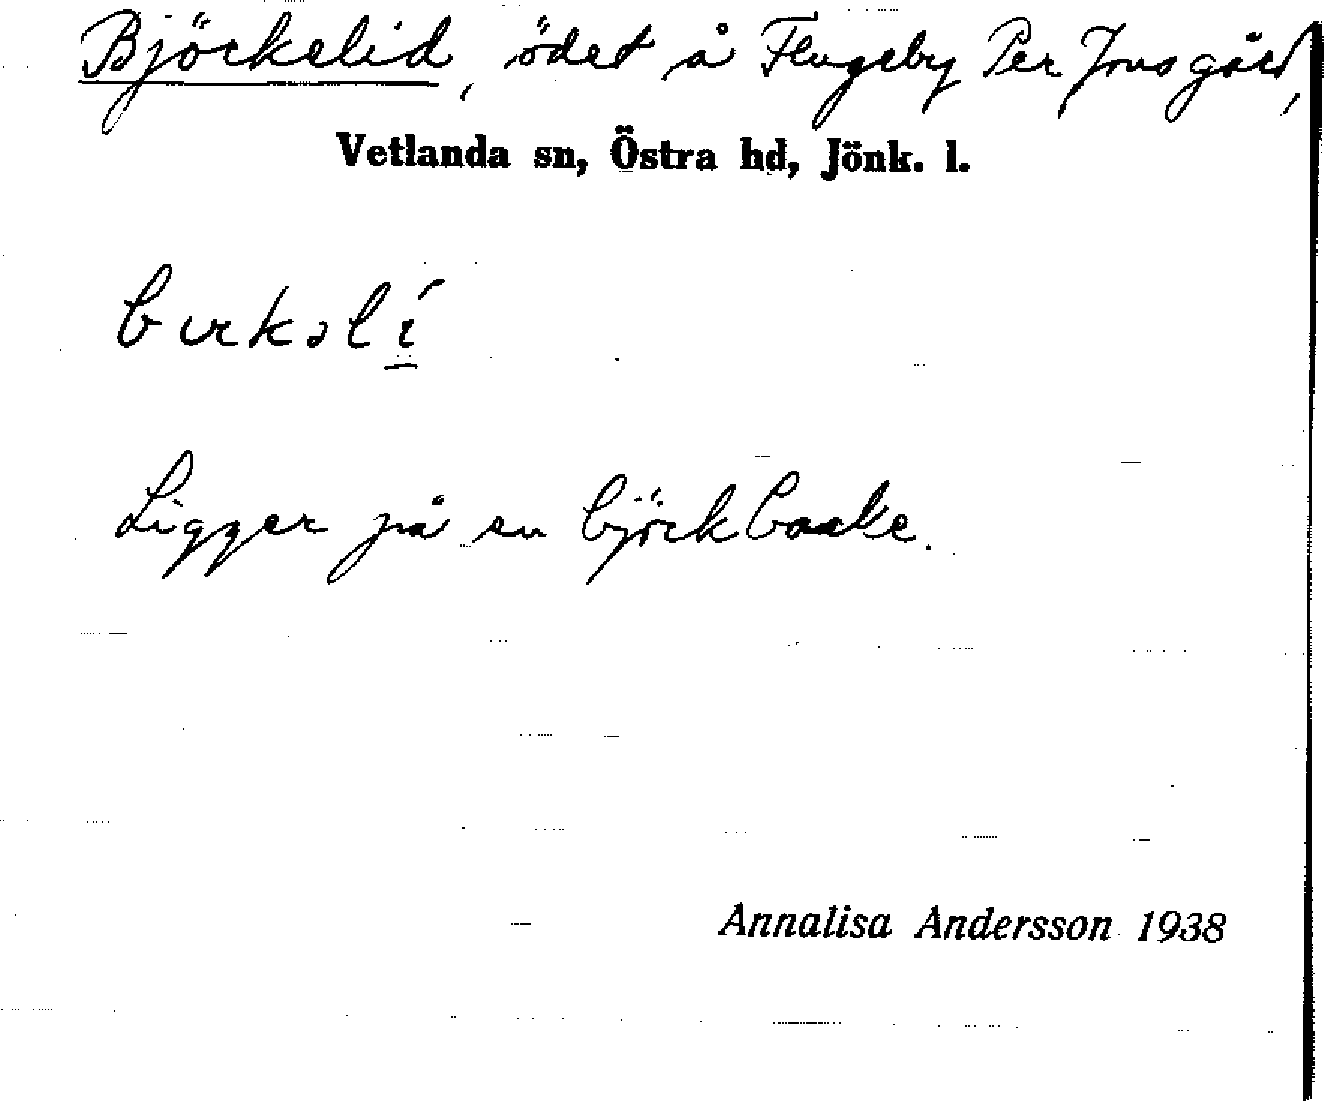 Björkelid, ödet å Flugeby Per Jonsgård,
Vetlanda sn, Östra hd, Jönk. l.
Ligger på en björkbacke.
Annalisa Andersson 1938